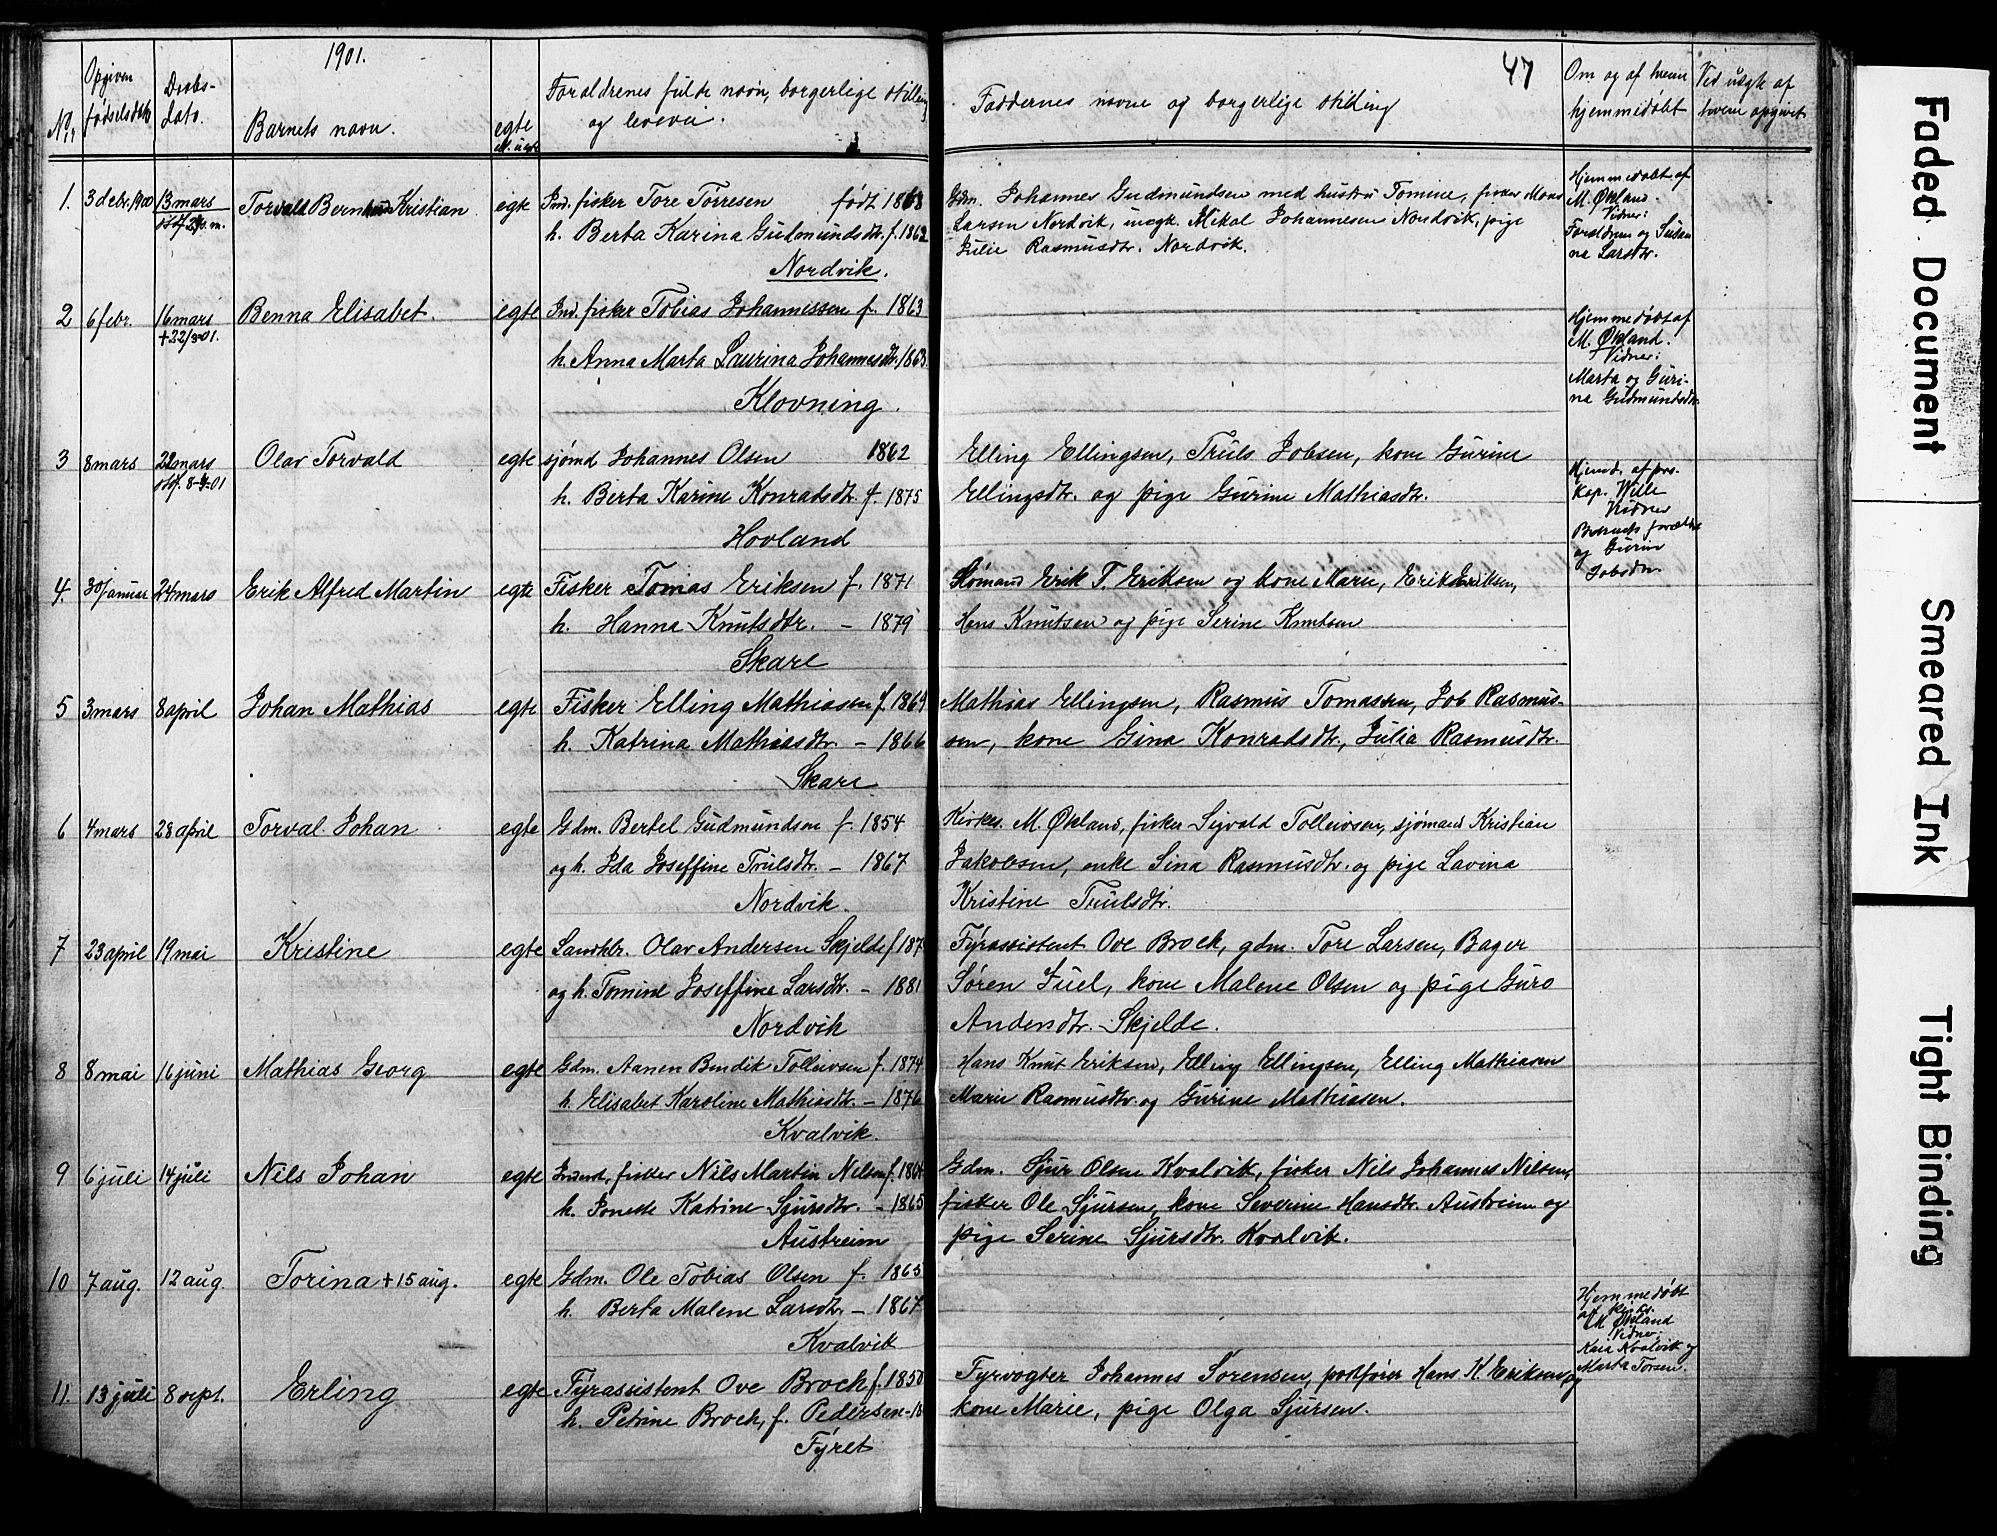 1901.
47
No.
Opgiven fødselsdato
Daabsdato.
Barnets navn.
egte el. uegte
Forældrenes fulde navn, borgerlige stilling og
Faddernes navne og borgerlige stilling
Om og af hvem hjemmedøbt
Ved uegte af hvem opgivet
1. 3 debr. 1900 13 mars Torvald Bernhard Kristian egte Ind. fisker Tore Torresen født 1868
h. Berta Karina Gudmundsdtr. f. 1862
Nordvik.
Gdm. Johannes Gudmundsen med hustru Tomine, fisker Mons
Larsen Nordvik, ungk. Mikal Johannesen Nordvik, pige
Julie Rasmusdtr. Nordvik.
Hjemmedøbt af
M. Økland.
Vidner:
Forældrene og Susan
na Larsdtr.
2 6 febr. 16 mars Benna Elisabet. egte Ind. fisker Tobias Johannessen f. 1863
+22/3 01.
h. Anna Marta Laurina Johannesdtr. 1863.
Klovning.
Hjemmedøbt af
M. Økland.
Vidner:
Marta og Guri-
na Gudmundsdtr.
3 8 mars 22 mars Olav Torvald egte sjømd Johannes Olsen 1862
h. Berta Karine Konradsdtr. f. 1875
Hovland
Elling Ellingsen, Truls Jobsen, kone Gurine
Ellingsdtr. og pige Gurine Mathiasdtr.
Hjemd. af pres.
Kap. Wille
Vidner
Barnets forældre
og Gurin
Jobsdtr
4. 30 januar 24 mars Erik Alfred Martin egte Fisker Tomas Eriksen f. 1871
h. Hanna Knutsdtr. – 1879
Skare
Sømand Erik T. Eriksen og kone Marie, Erik Eriksen,
Hans Knutsen og pige Serine Knutsen
5 3 mars 8 april Johan Mathias egte Fisker Elling Mathiasen f. 1869
h. Katrina Mathiasdtr. – 1866
Skare
Mathias Ellingsen, Rasmus Tomassen, Job Rasmus-
sen, kone Gina Konradsdtr., Julia Rasmusdtr.
6 4 mars 28 april Torval Johan egte Gdm. Bertel Gudmundsen f. 1854
og h. Ida Joseffine Trulsdtr. – 1867
Nordvik.
Kirkes. M. Økland, fisker Sigvald Tolleivsen, sjømand Kristian
Jakobsen, enke Sina Rasmusdtr. og pige Lavina
Kristine Trulsdtr.
7 23 april 19 mai Kristine egte Landhdr. Olav Andersen Skjelde f 187
og h. Tomine Joseffine Larsdtr. – 1881
Nordvik
Fyrassistent Ove Brock, gdm. Tore Larsen, Bager
Søren Juel, kone Malene Olsen og pige Guro
Andersdtr. Skjelde.
8 8 mai 16 juni Mathias Georg egte Gdm. Aanen Bendik Tolleivsen f. 1874
h. Elisabet Karoline Mathiasdtr. – 1876
Kvalvik.
Hans Knut Eriksen, Elling Ellingsen, Elling Mathiasen
Marie Rasmusdtr. og Gurine Mathiasen.
9 6 juli 14 juli Nils Johan egte Inderst, fisker Nils Martin Nilsen f. 1864
h. Jonette Katrine Sjursdtr. – 1865
Austreim
Gdm. Sjur Olsen Kvalvik, fisker Nils Johannes Nilsen,
fisker Ole Sjursen, kone Severine Hansdtr. Austreim og
pige Serine Sjursdtr. Kvalvik.
10 7 aug. 12 aug. Torina + 15 aug. egte Gdm. Ole Tobias Olsen f. 1865
h. Berta Malene Larsdtr. – 1867
Kvalvik
Hjemmedøbt
af kirks.
M. Økland
Vidner:
Kaia Kvalvik og
Marta Torsen.
11. 13 juli 8 sept. Erling egte Fyrassistent Ove Brock f. 1850
h. Petrine Brock, f. Pedersen – 18
Fyret
Fyrvogter Johannes Sørensen, postfører Hans K. Eriksen og
kone Marie, pige Olga Sjursen.
Faded Document
Smeared Ink
Tight Binding